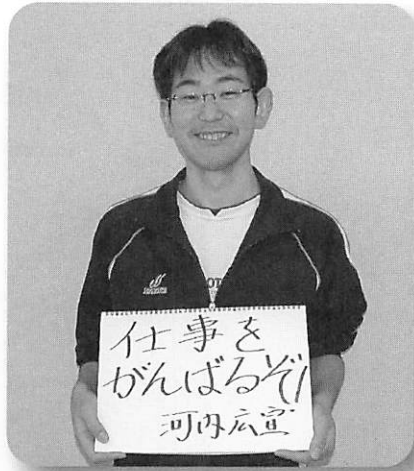 仕事を
がんばるぞ!
河内広宣